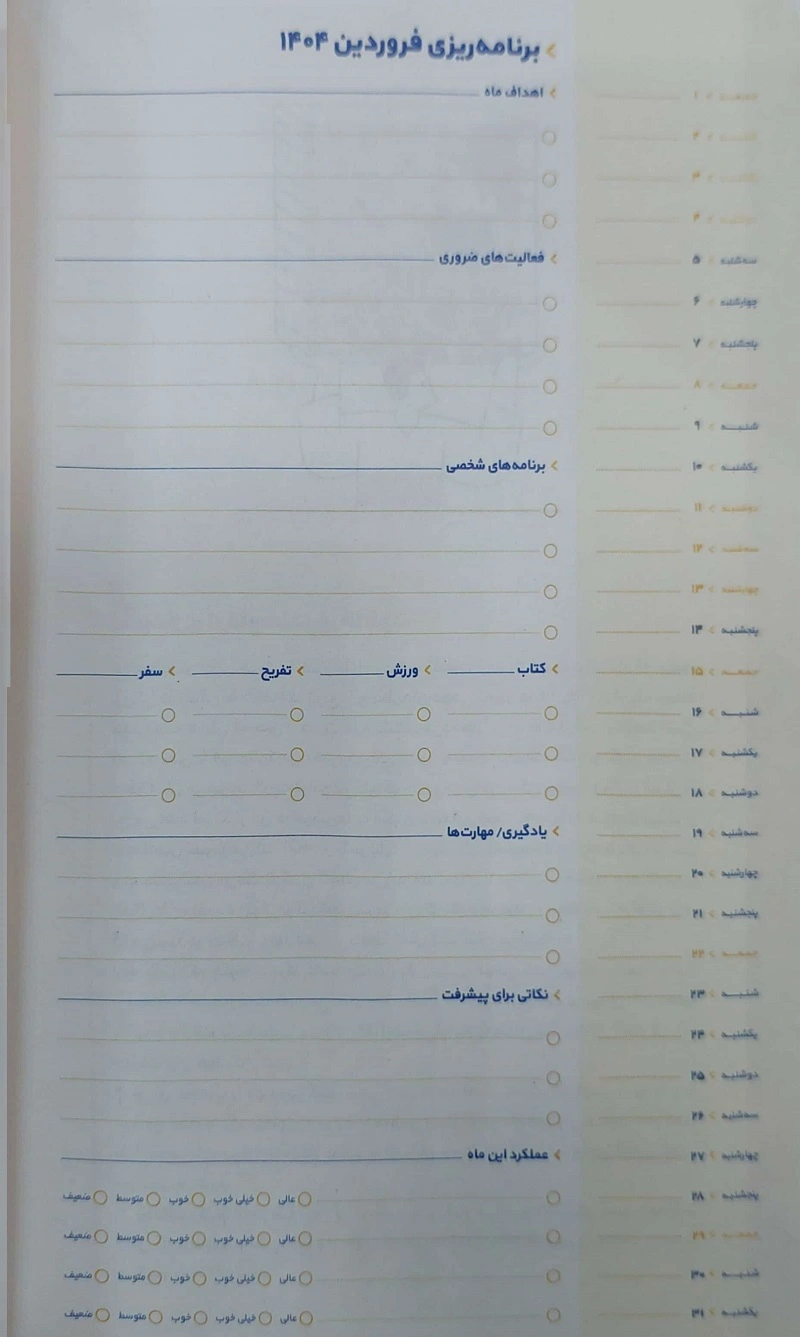 برنامه‌ریزی فروردین ۱۴۰۴
اهداف ماه
فعالیت‌های ضروری
برنامه‌های شخصی
کتاب ورزش تفریح سفر
یادگیری/ مهارت‌ها
نکاتی برای پیشرفت
عملکرد این ماه
عالی خیلی خوب خوب متوسط ضعیف
عالی خیلی خوب خوب متوسط ضعیف
عالی خیلی خوب خوب متوسط ضعیف
عالی خیلی خوب خوب متوسط ضعیف
جمعه ۱
۲
۳
۴
سه‌شنبه ۵
چهارشنبه ۶
پنجشنبه ۷
جمعه ۸
شنبه ۹
یکشنبه ۱۰
دوشنبه ۱۱
سه‌شنبه ۱۲
چهارشنبه ۱۳
پنجشنبه ۱۴
جمعه ۱۵
شنبه ۱۶
یکشنبه ۱۷
دوشنبه ۱۸
سه‌شنبه ۱۹
چهارشنبه ۲۰
پنجشنبه ۲۱
جمعه ۲۲
شنبه ۲۳
یکشنبه ۲۴
دوشنبه ۲۵
سه‌شنبه ۲۶
چهارشنبه ۲۷
پنجشنبه ۲۸
جمعه ۲۹
شنبه ۳۰
یکشنبه ۳۱